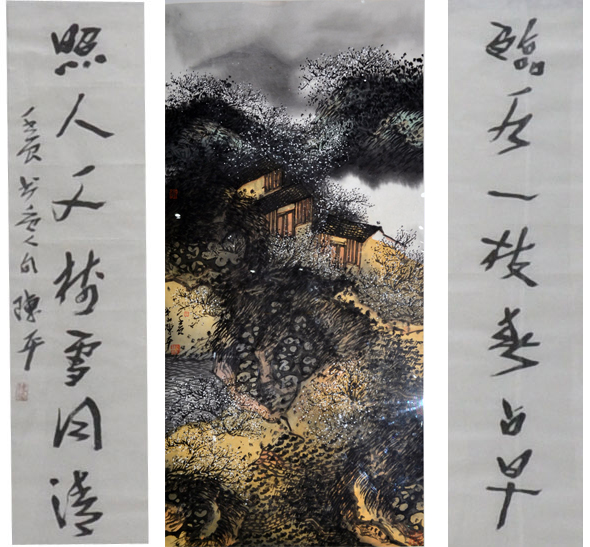 臨水一枝春占早
照人千樹雪同清
陳平